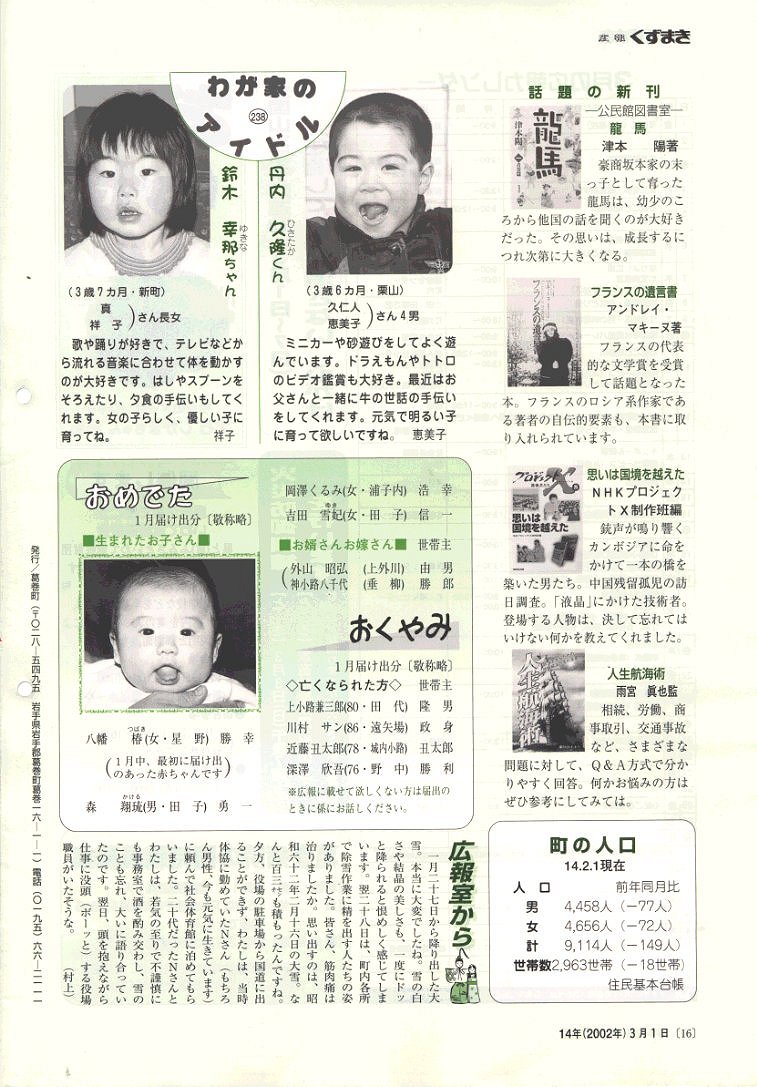 広報 くずまき
わが家の
アイドル
238
丹内 久隆くん
ひさたか
鈴木 幸那ちゃん
ゆきな
(3歳7カ月・新町)
真
祥子
さん長女
歌や踊りが好きで、テレビなどか
ら流れる音楽に合わせて体を動かす
のが大好きです。はしやスプーンを
そろえたり、夕食の手伝いもしてく
れます。女の子らしく、優しい子に
育ってね。 祥子
(3歳6カ月・栗山)
久仁人
恵美子
さん4男
ミニカーや砂遊びをしてよく遊
んでいます。ドラえもんやトトロ
のビデオ鑑賞も大好き。最近はお
父さんと一緒に牛の世話の手伝い
をしてくれます。元気で明るい子
に育って欲しいですね。 恵美子
話題の新刊
―公民館図書室―
龍馬
津本 陽著
龍馬
津本陽
豪商坂本家の末
っ子として育った
龍馬は、幼少のこ
ろから他国の話を聞くのが大好き
だった。その思いは、成長するに
つれ次第に大きくなる。
フランスの遺言書
アンドレイ・
マキーヌ著
フランスの代表
的な文学賞を受賞
して話題となった
本。フランスのロシア系作家であ
る著者の自伝的要素も、本書に取
り入れられています。
思いは国境を越えた
NHKプロジェク
トX制作班編
プロジェクトX
思いは
国境を越えた
銃声が鳴り響く
カンボジアに命を
かけて一本の橋を
築いた男たち。中国残留孤児の訪
日調査。「液晶」にかけた技術者。
登場する人物は、決して忘れては
いけない何かを教えてくれました。
人生航海術
雨宮 眞也監
人生航海術
相続、労働、商
事取引、交通事故
など、さまざまな
問題に対して、Q&A方式で分か
りやすく回答。何かお悩みの方は
ぜひ参考にしてみては。
おめでた
1月届け出分〔敬称略〕
■生まれたお子さん■
八幡 椿(女・星 野) 勝 幸
つばき
(1月中、最初に届け出
のあった赤ちゃんです)
森 翔琉(男・田 子) 勇 一
かける
岡澤くるみ(女・浦子内) 浩 幸
吉田 雪妃(女・田 子) 信 一
ゆき
■お婿さんお嫁さん■ 世帯主
外山 昭弘 (上外川) 由 男
神小路八千代 (垂 柳) 勝 郎
おくやみ
1月届け出分〔敬称略〕
◇亡くなられた方◇ 世帯主
上小路兼三郎(80・田 代) 隆 男
川村 サン(86・遠矢場) 政 身
近藤丑太郎(78・城内小路) 丑太郎
深澤 欣吾(76・野 中) 勝 利
※広報に載せて欲しくない方は届出の
ときに係にお話しください。
広報室から
一月二十七日から降り出した大
雪。本当に大変でしたね。雪の白
さや結晶の美しさも、一度にドッ
と降られると恨めしく感じてしま
います。翌二十八日は、町内各所
で除雪作業に精を出す人たちの姿
がありました。皆さん、筋肉痛は
治りましたか。思い出すのは、昭
和六十二年二月十六日の大雪。な
んと百三㌢も積もったんですね。
夕方、役場の駐車場から国道に出
ることができず、わたしは、当時
体協に勤めていたNさん(もちろ
ん男性、今も元気に生きています)
に頼んで社会体育館に泊めてもら
いました。二十代だったNさんと
わたしは、若気の至りで不謹慎に
も事務室で酒を酌み交わし、雪の
ことも忘れ、大いに語り合ってい
たのです。翌日、頭を抱えながら
仕事に没頭(ボーッと)する役場
職員がいたそうな。 (村上)
町の人口
14.2.1現在
人 口 前年同月比
男 4,458人 (−77人)
女 4,656人 (−72人)
計 9,114人 (−149人)
世帯数2,963世帯 (−18世帯)
住民基本台帳
発行/葛巻町 (〒〇二八―五四九五 岩手県岩手郡葛巻町葛巻一六―一―一) 電話(〇一九五)六六―二一一一
14年(2002年)3月1日〔16〕